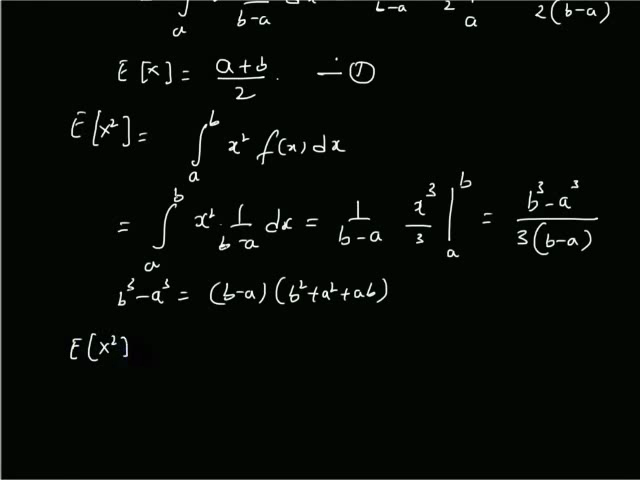 ∫ₐ b-a b-a 2 a 2(b-a)
E[x] = (a+b)/2 . — ①
E[x²] = ∫ₐᵇ x² f(x) dx
= ∫ₐᵇ x² · 1/(b-a) dx = 1/(b-a) x³/3 |ₐᵇ = (b³-a³)/(3(b-a))
b³-a³ = (b-a)(b²+a²+ab)
E[x²]